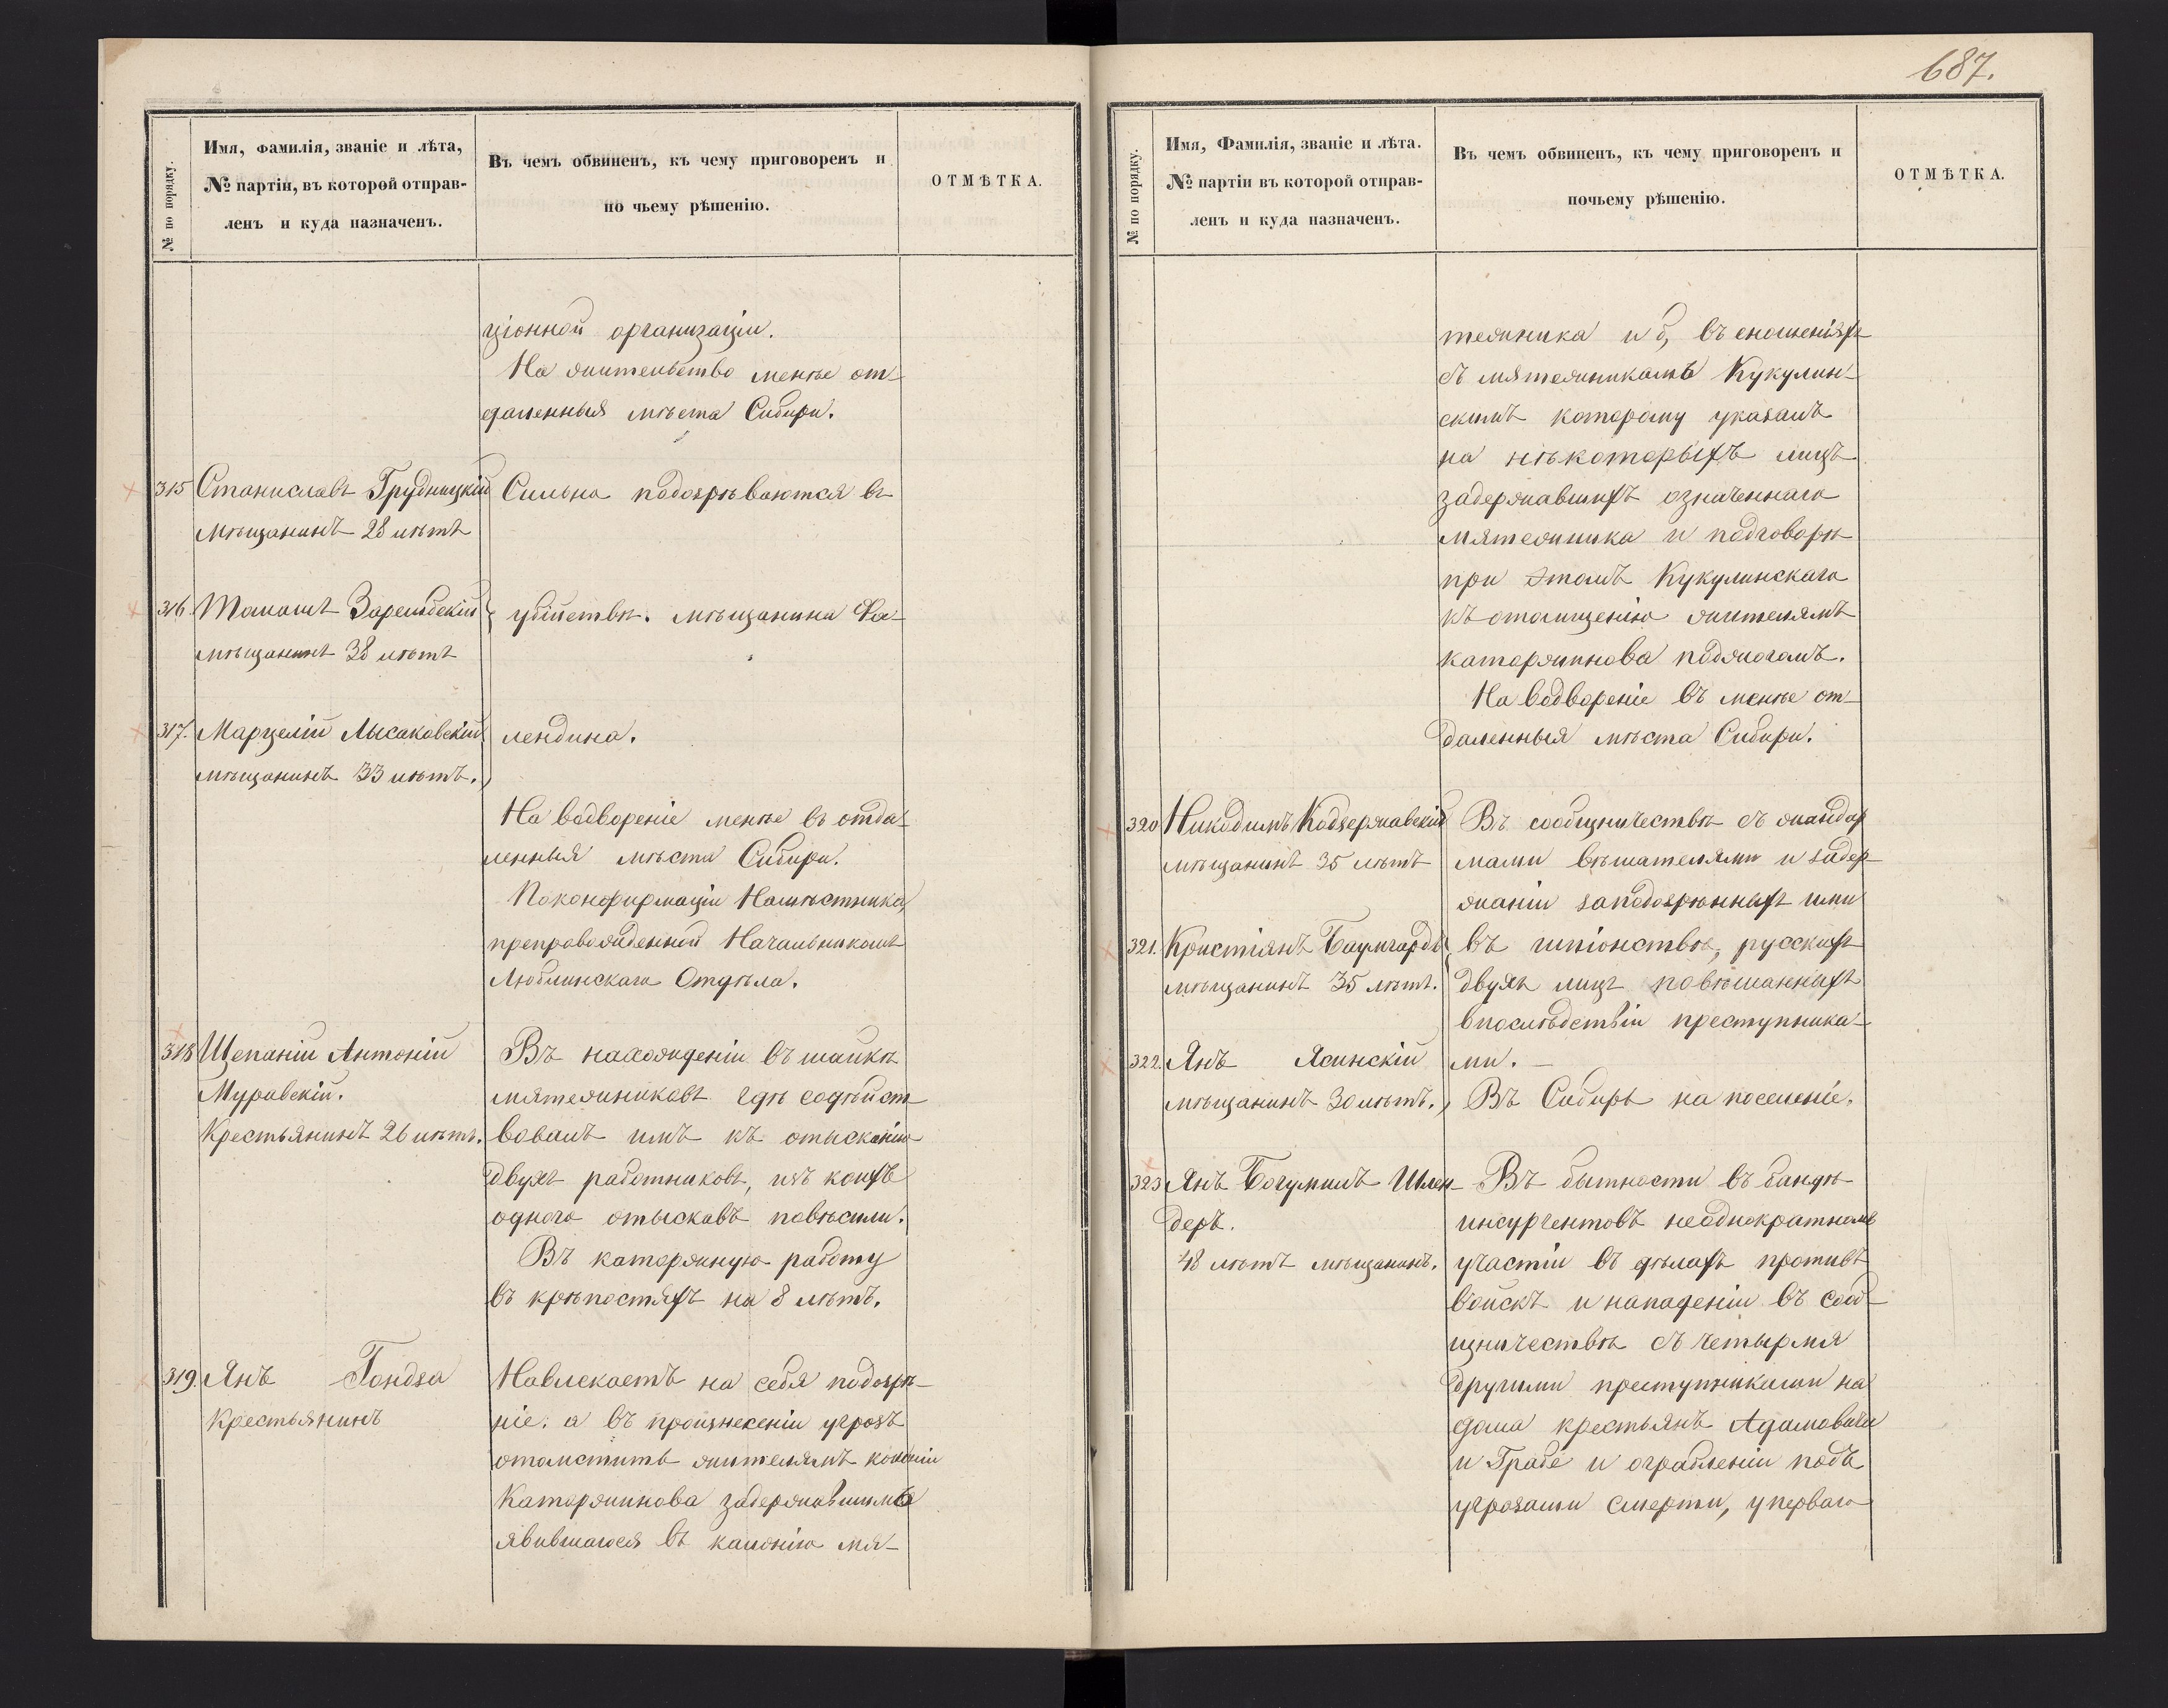 687.
№ по порядку.
Имя, Фамилія, званіе и лѣта,
№ партіи, въ которой отправ-
ленъ и куда назначенъ.
Въ чемъ обвиненъ, къ чему приговоренъ и
по чьему рѣшенію.
ОТМѢТКА.
ціонной организаціи.
На жительство менѣе от-
даленныя мѣста Сибири.
315 Станиславъ Грудницкій
мѣщанинъ 28 лѣтъ
Сильно подозрѣваются въ
316. Томашъ Зарембскій
мѣщанинъ 38 лѣтъ
убійствѣ. мѣщанина Фа-
317. Марцелій Лысаковскій
мѣщанинъ 33 лѣтъ.
лендина.
На водвореніе менѣе въ отда-
ленныя мѣста Сибири.
По конфирмаціи Намѣстника,
препровожденной Начальникомъ
Люблинскаго Отдѣла.
318 Щепаній Антоній
Муравскій.
Крестьянинъ 26 лѣтъ.
Въ нахожденіи въ шайкѣ
мятежниковъ гдѣ содѣйст
вовалъ имъ къ отысканію
двухъ работниковъ, изъ коихъ
одного отыскавъ повѣсили.
Въ каторжную работу
въ крѣпостяхъ на 8 лѣтъ.
319. Янъ Гондза
Крестьянинъ
Навлекаетъ на себя подозрѣ-
ніе: а въ произнесеніи угрозъ
отомстить жителямъ колоніи
Каторжинова задержавшимъ
явившагося въ колонію мя-
№ по порядку.
Имя, Фамилія, званіе и лѣта.
№ партіи въ которой отправ-
ленъ и куда назначенъ.
Въ чемъ обвиненъ, къ чему приговоренъ и
почьему рѣшенію.
ОТМѢТКА.
тежника и б, въ сношеніяхъ
съ мятежникамъ Кукулин-
скимъ которому указалъ
на нѣкоторыхъ лицъ
задержавшихъ означеннаго
мятежника и подговорѣ
при этомъ Кукулинскаго
къ отомщенію жителямъ
каторжинова поджогомъ.
На водвореніе въ менѣе от-
даленныя мѣста Сибири.
320 Никодимъ Кодзержавскій
мѣщанинъ 35 лѣтъ
Въ сообщничествѣ съ жандар
мами вѣшателями и задер-
жаніи заподозрѣнныхъ ими
321. Кристіянъ Баумгардъ
мѣщанинъ 35 лѣтъ.
въ шпіонствѣ, русскихъ
двухъ лицъ повѣшанныхъ
впослѣдствіи преступника-
322. Янъ Ясинскій
мѣщанинъ 30 лѣтъ.
ми.
Въ Сибирь на поселеніе.
323 Янъ Богумилъ Шлен-
деръ.
48 лѣтъ мѣщанинъ.
Въ бытности въ бандѣ
инсургентовъ неоднократномъ
участіи въ дѣлахъ противъ
войскъ и нападеніи въ сооб-
щничествѣ съ четырмя
другими преступниками на
дома крестьянъ Адамовича
и Грабе и ограбленіи подъ
угрозами смерти, у перваго